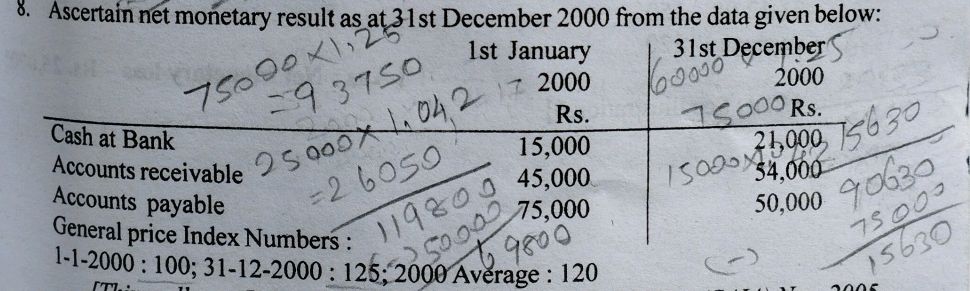 8. Ascertain net monetary result as at 31st December 2000 from the data given below:
1st January 31st December
2000 2000
Rs. Rs.
Cash at Bank 15,000 21,000
Accounts receivable 45,000 54,000
Accounts payable 75,000 50,000
General price Index Numbers :
1-1-2000 : 100; 31-12-2000 : 125; 2000 Average : 120
75000×1.25
=93750
25000×1.042
=26050
119800
(-)50000
69800
60000 × 1.25
75000
15000×1.042 15630
90630
(-) 75000
15630